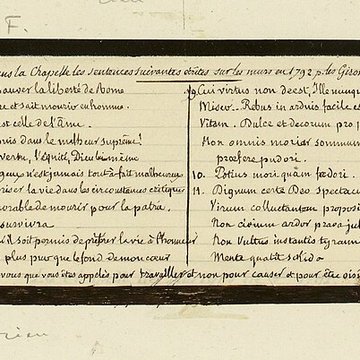 F.
la Chapelle les sentences suivantes écrites sur les murs en 1792 p. les Giro
sauver la liberté de Rome
re et sait mourir en homme.
est celle de l'âme.
dans le malheur suprême?
vertu, l'Equité, Dieu lui même
n'est jamais tout-à-fait malheureux
la vie dans les circonstances critiques
de mourir pour la patria
survivra
il soit permis de préférer la vie à l'honneur
plus pur que le fond de mon cœur
vous que vous êtes appelés pour travailler et non pour causer et pour être oisi
9 Cui virtus non deest, Ille nunqu
Misero. Rebus in arduis facile est
Vitam. Dulce et decorum pro p
Non omnis moriar summum
præfere pudori.
10. Potius mori quam fœdori.
11. Dignum certè Deo spectacu
Virum colluctantem proposi
Non civium ardor prava jub
Non Vultus instantis tyrann
Mente quatit solido